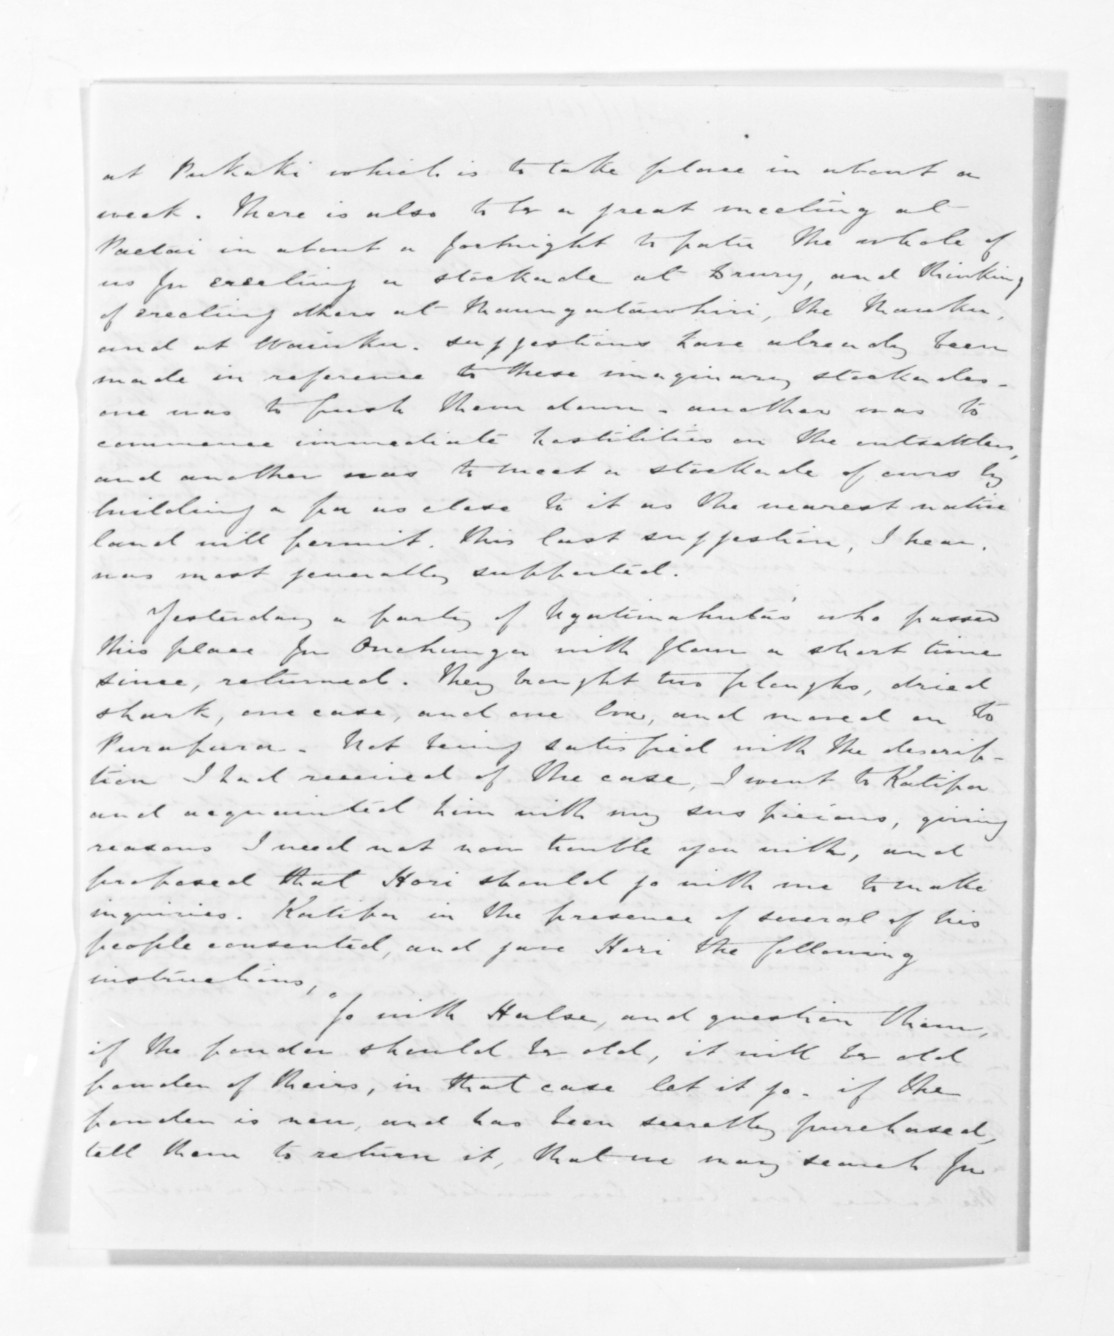 at Pukaki which is to take place in about a
week. There is also to be a great meeting at
Paetai in about a fortnight to the whole of
us for erecting a stockade at Drury, and thinking
of erecting others at Maungatawhiri, the Mauku,
and at Waiuku. Suggestions have already been
made in reference to these imaginary stockades.
one was to push them down. another was to
commence immediate hostilities on the outsettlers,
and another was to meet a stockade of ours by
building a pa as close to it as the nearest native
land will permit. This last suggestion, I hear,
was most generally supported.
Yesterday a party of Ngatimahuta's who passed
this place for Onehunga with flour a short time
since, returned. They brought two ploughs, dried
shark, one case, and one box, and moved on to
Purapura. Not being satisfied with the descrip-
tion I had received of the case, I went to Katipa
and acquainted him with my suspicions, giving
reasons I need not now trouble you with, and
proposed that Hori should go with me to make
inquiries. Katipa in the presence of several of his
people consented, and gave Hori the following
instructions,
"Go with Halse, and question them,
if the powder should be old, it will be old
powder of theirs, in that case let it go. if the
powder is new, and has been secretly purchased,
tell them to return it, that we may search for